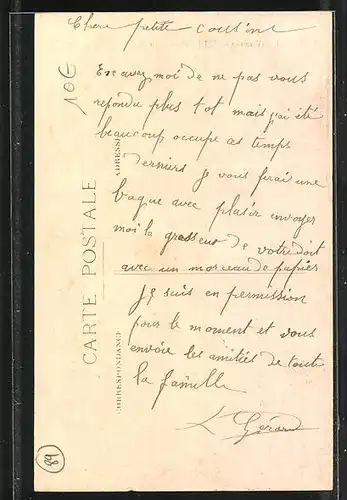 Chère petite cousine
Excusez moi de ne pas vous
repondu plus tot mais j'ai été
beaucoup occupe ces temps
derniers je vous ferai une
bague avec plaisir envoyer
moi la grosseur de votre doit
avec un morceau de papier
Je suis en permission
pour le moment et vous
envoie les amitiés de toute
la famille
L Gérard
10€
CARTE POSTALE
CORRESPONDANCE
ADRESSE
89